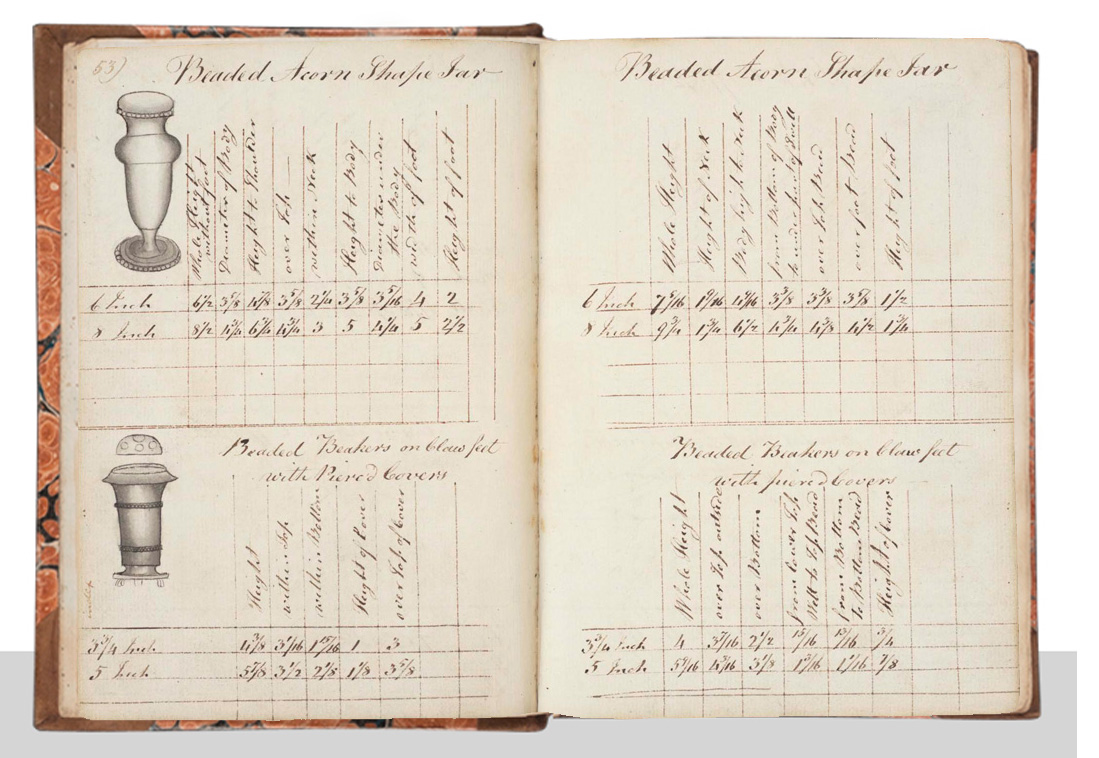 53)
Beaded Acorn Shape Jar
Whole Height without foot
Diameter of Body
Height to Shoulder
over Top
within Neck
Height to Body
Diameter under the Body
width of foot
Height of foot
6 Inch 6 1/2 3 5/8 3 5/8 2 1/4 3 5/8 4 2
8 Inch 8 1/2 4 3/4 6 3/4 4 3/4 3 5 4 1/4 5 2 1/2
Beaded Beakers on Claw feet
with Pierced Covers
Height
within Top
within Bottom
Height of Cover
over Top of Cover
3 3/4 Inch 4 3/8 3 1/16 1 15/16 1 3
5 Inch 3 1/2 2 1/8 1 1/8 3 5/8
Beaded Acorn Shape Jar
Whole Height
Height of Neck
Body high to Neck
from Bottom of Body
over Top Bead
over foot Bead
Height of foot
6 Inch 1 9/16 3 5/8 1 1/2
8 Inch 9 3/4 1 3/4 6 1/2 4 3/4 4 3/8 4 1/2 1 3/4
Beaded Beakers on Claw feet
with pierced Covers
Whole Height
over Top outside
over Bottom
from lower Top
Well to Top Bead
from Bottom
to Bottom Bead
Height of Cover
3 3/4 Inch 4 2 1/2 15/16 3/4
5 Inch 3 1/8 7/8